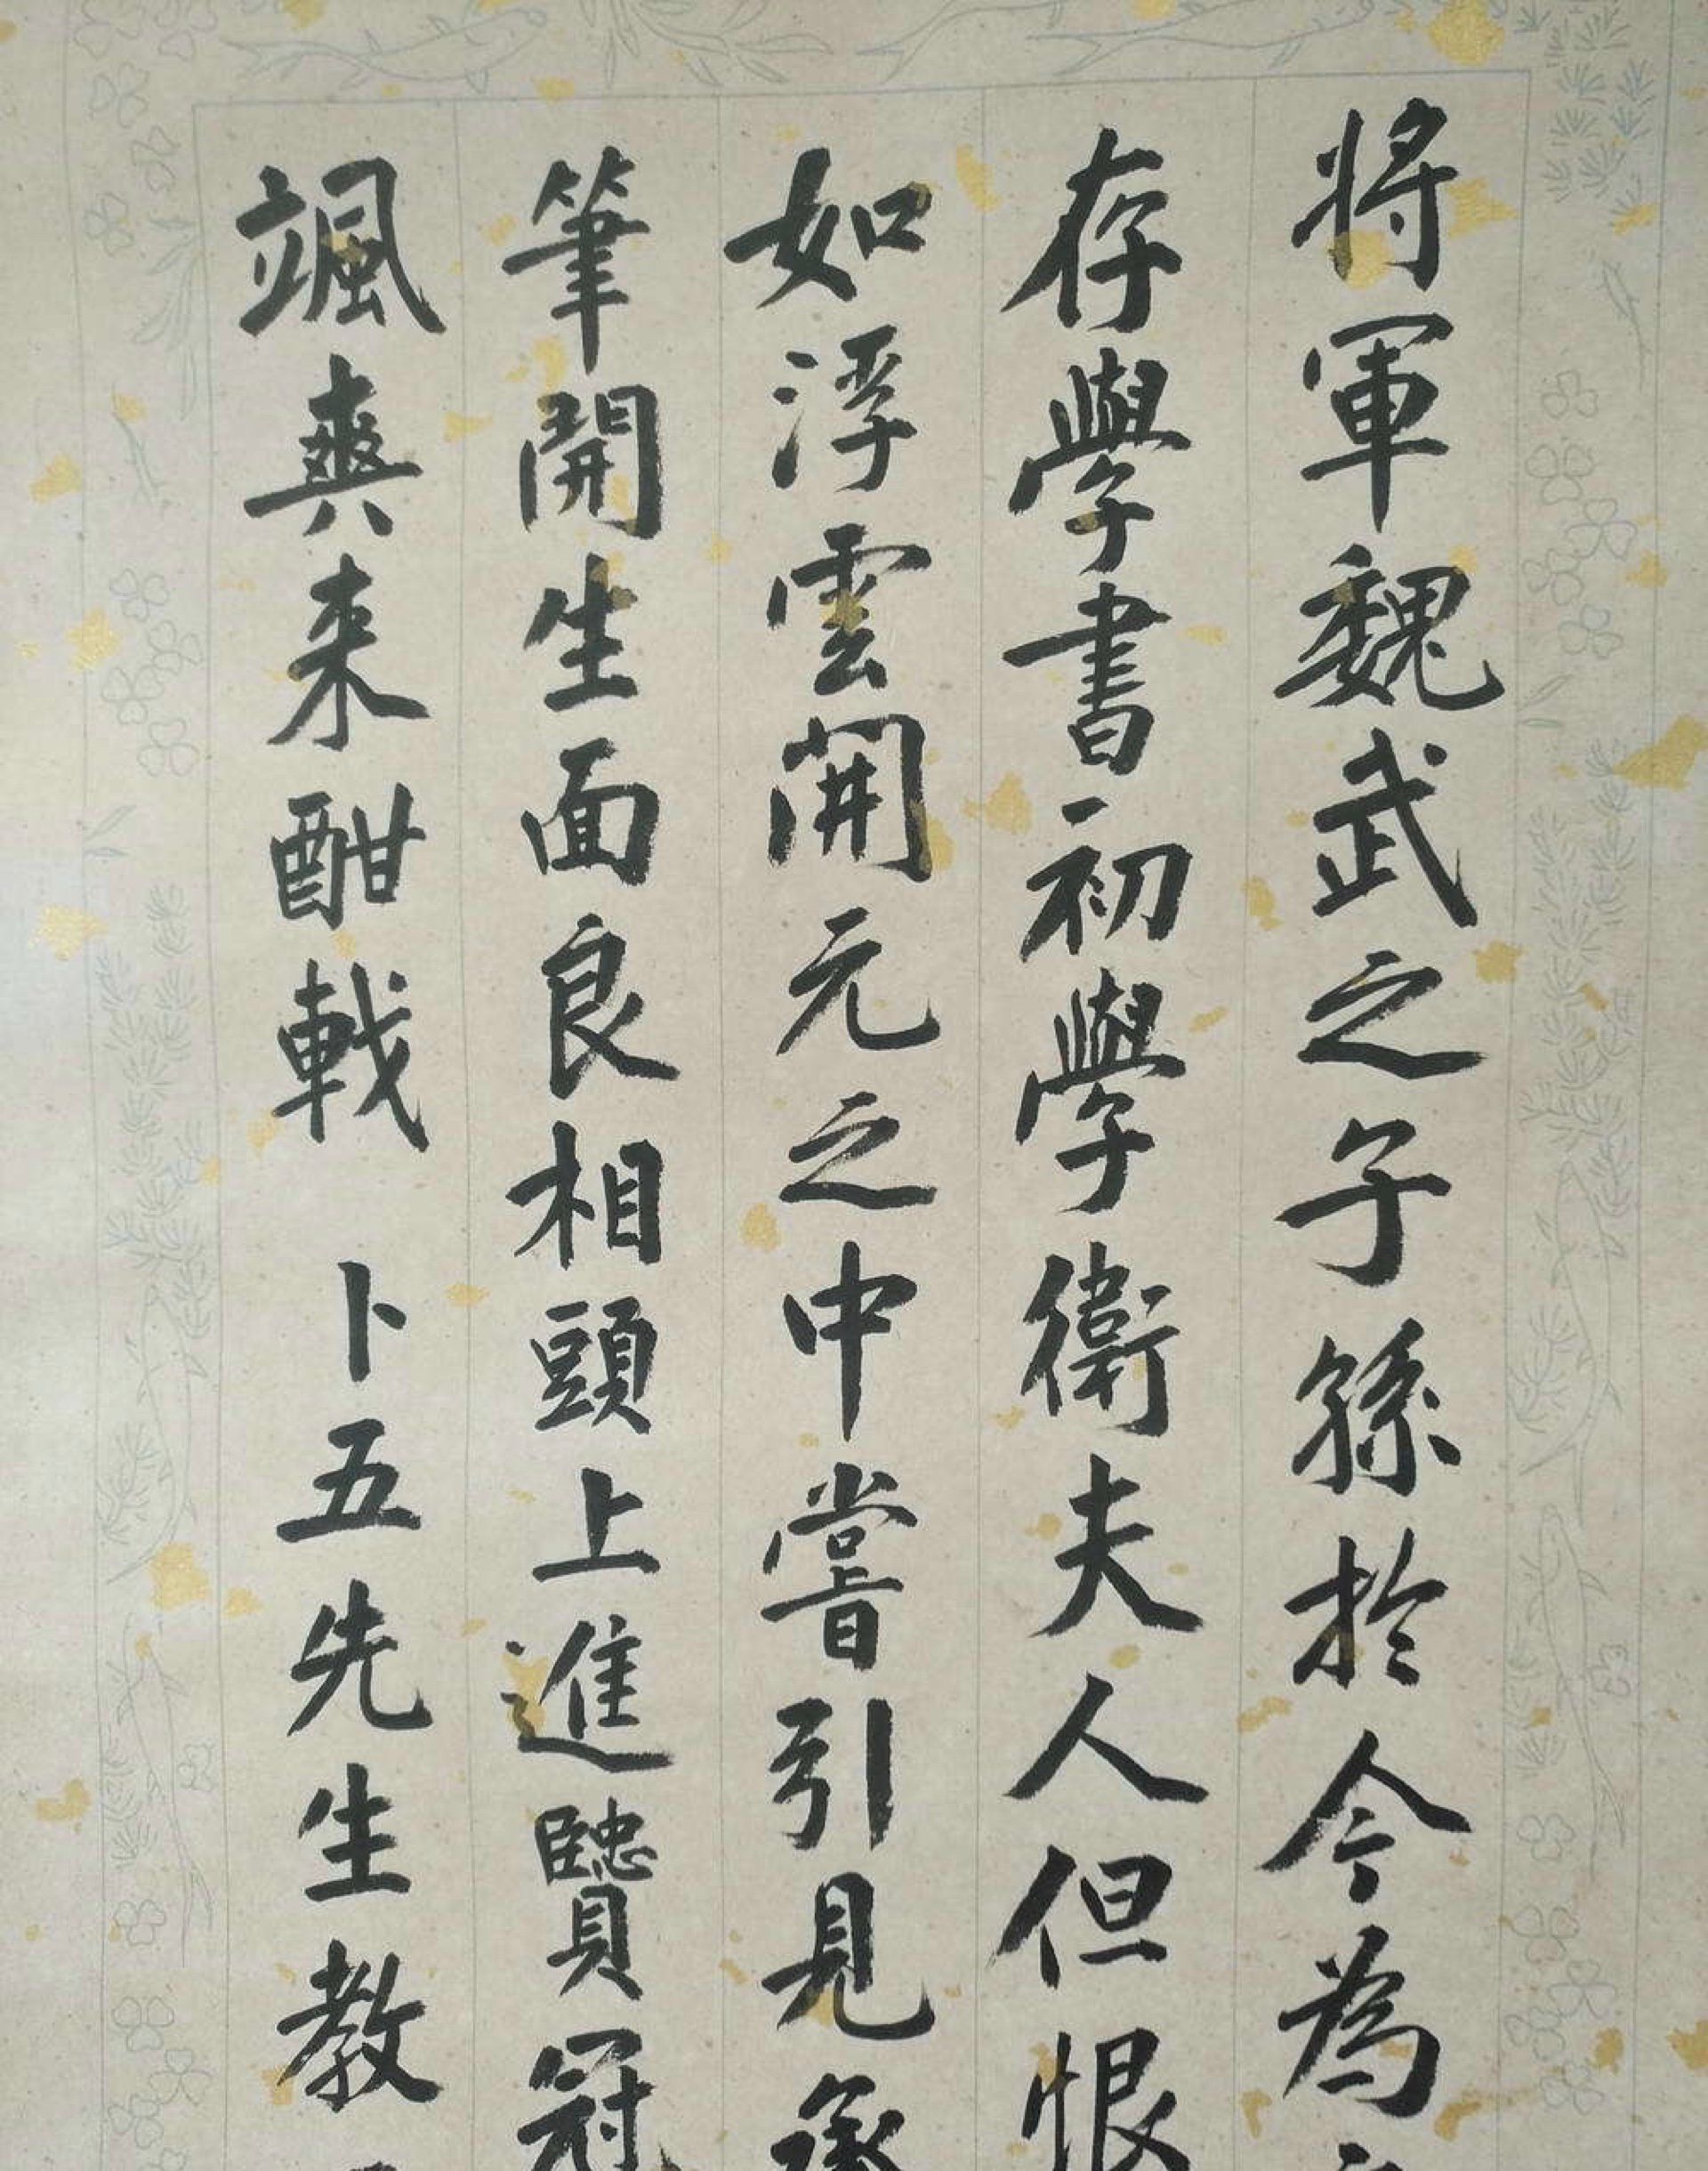 將軍魏武之子孫於今為
存學書初學衛夫人但恨
如浮雲開元之中嘗引見承
筆開生面良相頭上進賢冠
颯爽来酣戰 卜五先生教